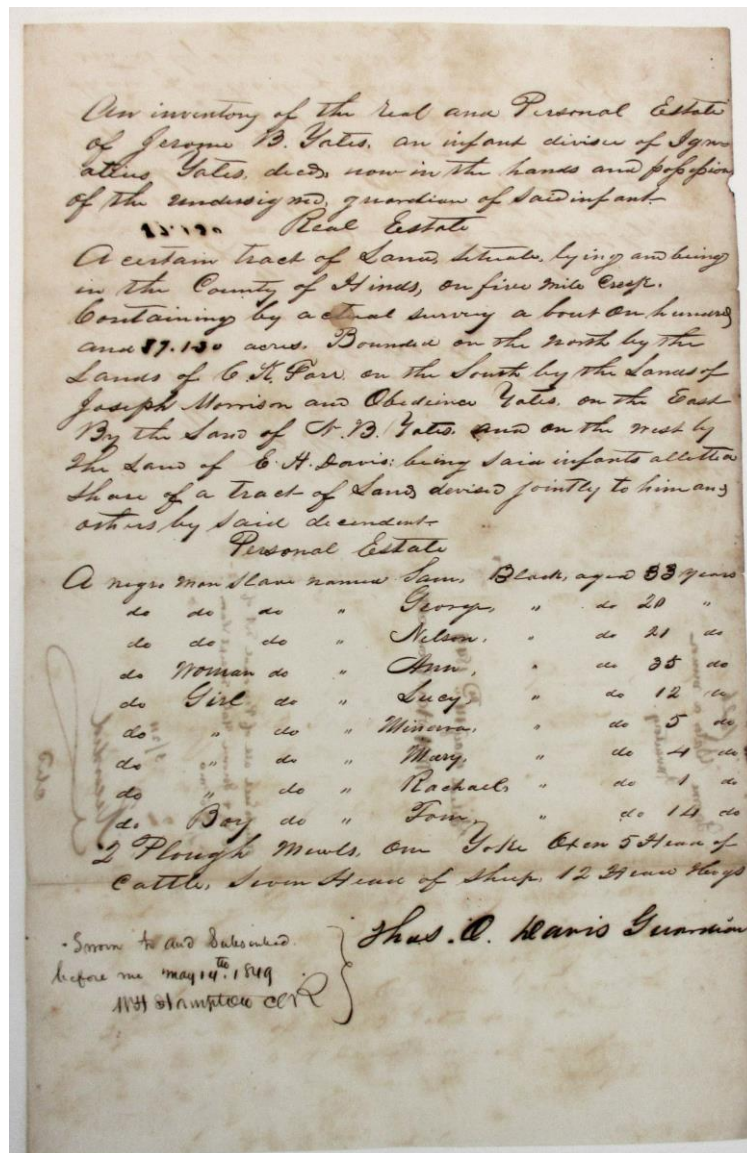 An inventory of the real and Personal Estate
of Jerome B. Yates, an infant divisee of Igna
atius Yates, decd, now in the hands and possession
of the undersigned, guardian of said infant
Real Estate
A certain tract of Land, situate, lying and being
in the County of Hinds, on five mile Creek.
Containing by actual survey about On hundred
and 87.130 acres. Bounded on the north by the
Lands of C K. Farr on the South by the Lands of
Joseph Morrison and Obedience Yates, on the East
By the Land of N. B. Yates and on the west by
the Land of E. H. Davis: being said infants allotted
share of a tract of Land devised jointly to him and
others by said decendent
Personal Estate
A negro man slave named Sam, Black, aged 33 years
do do do " George, " do 20 "
do do do " Nelson, " do 21 do
do Woman do " Ann, " do 35 do
do Girl do " Lucy, " do 12 do
do " do " Minerva, " do 5 do
do " do " Mary, " do 4 do
do " do " Rachael, " do 1 do
do Boy do " Tom, " do 14 do
2 Plough Mewls, One Yoke Oxen 5 Head of
Cattle, Seven Head of Sheep, 12 Head Hogs
Thos. O. Davis Guardian
Sworn to and Subscribed
before me may 14th. 1849
WH Hampton